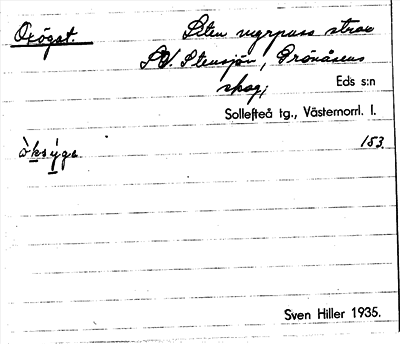 Oxögat. Liten myrpuss strax
SV. Stensjön, Grönåsens
skog;
Eds s:n
Sollefteå tg., Västernorrl. l.
153.
Sven Hiller 1935.